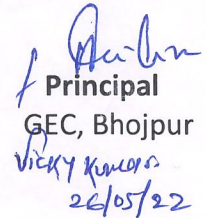 Principal
GEC, Bhojpur
Vicky Kumar
26/05/22